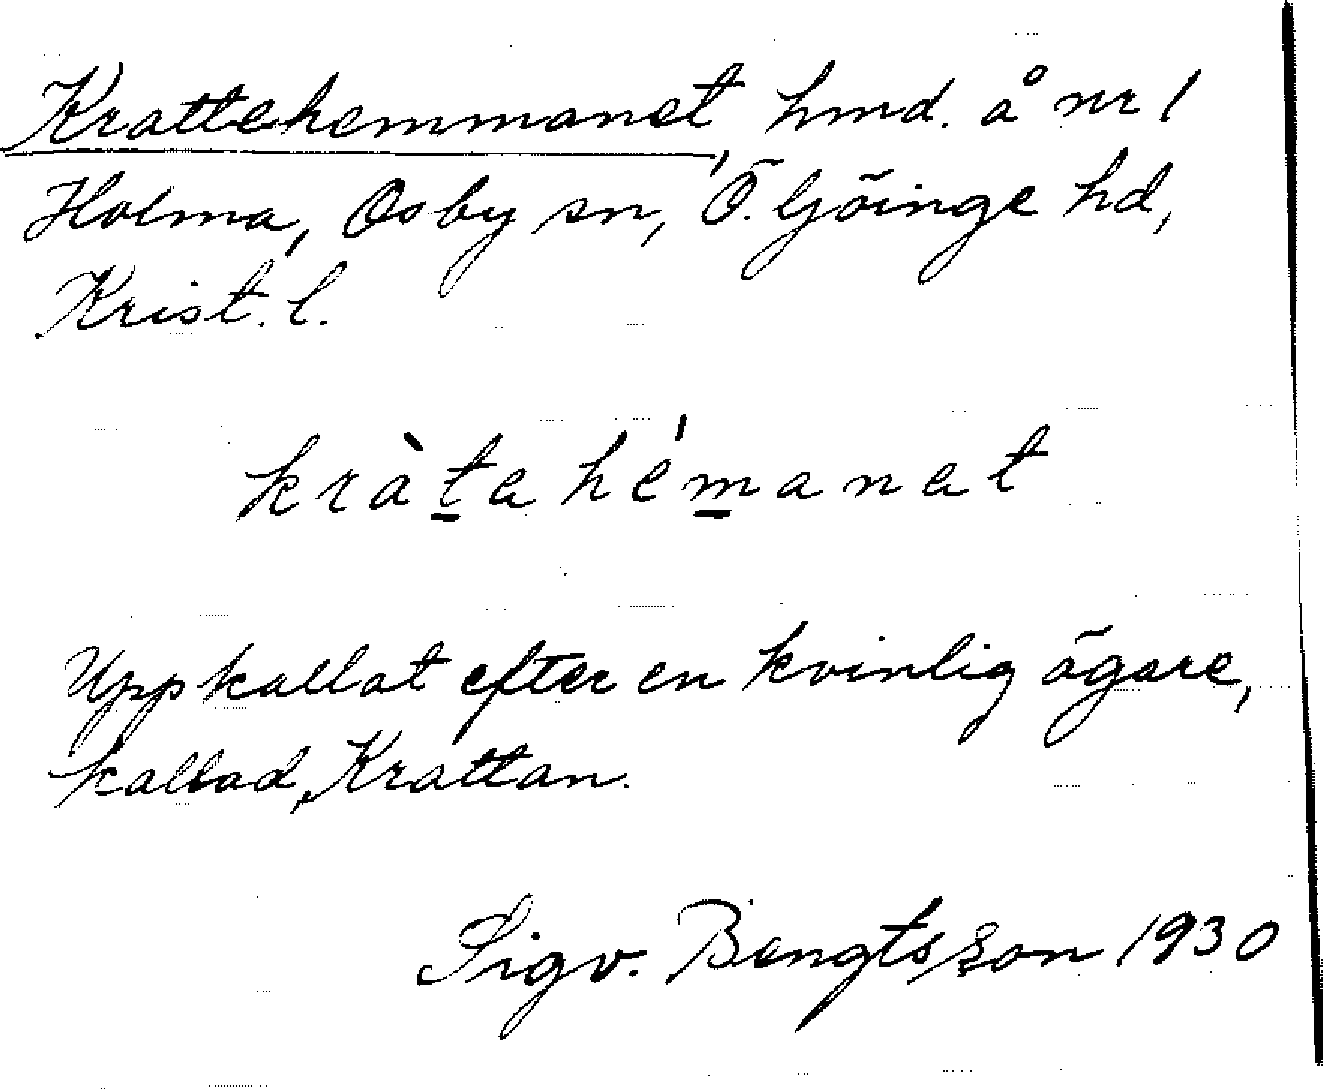 Krattehemmanet, hmd. å nr 1
Holma, Osby sn, Ö. Göinge hd,
Krist. l.
kràtahémanat
Uppkallat efter en kvinlig ägare,
kallad, Krattan.
Sigv. Bengtsson 1930